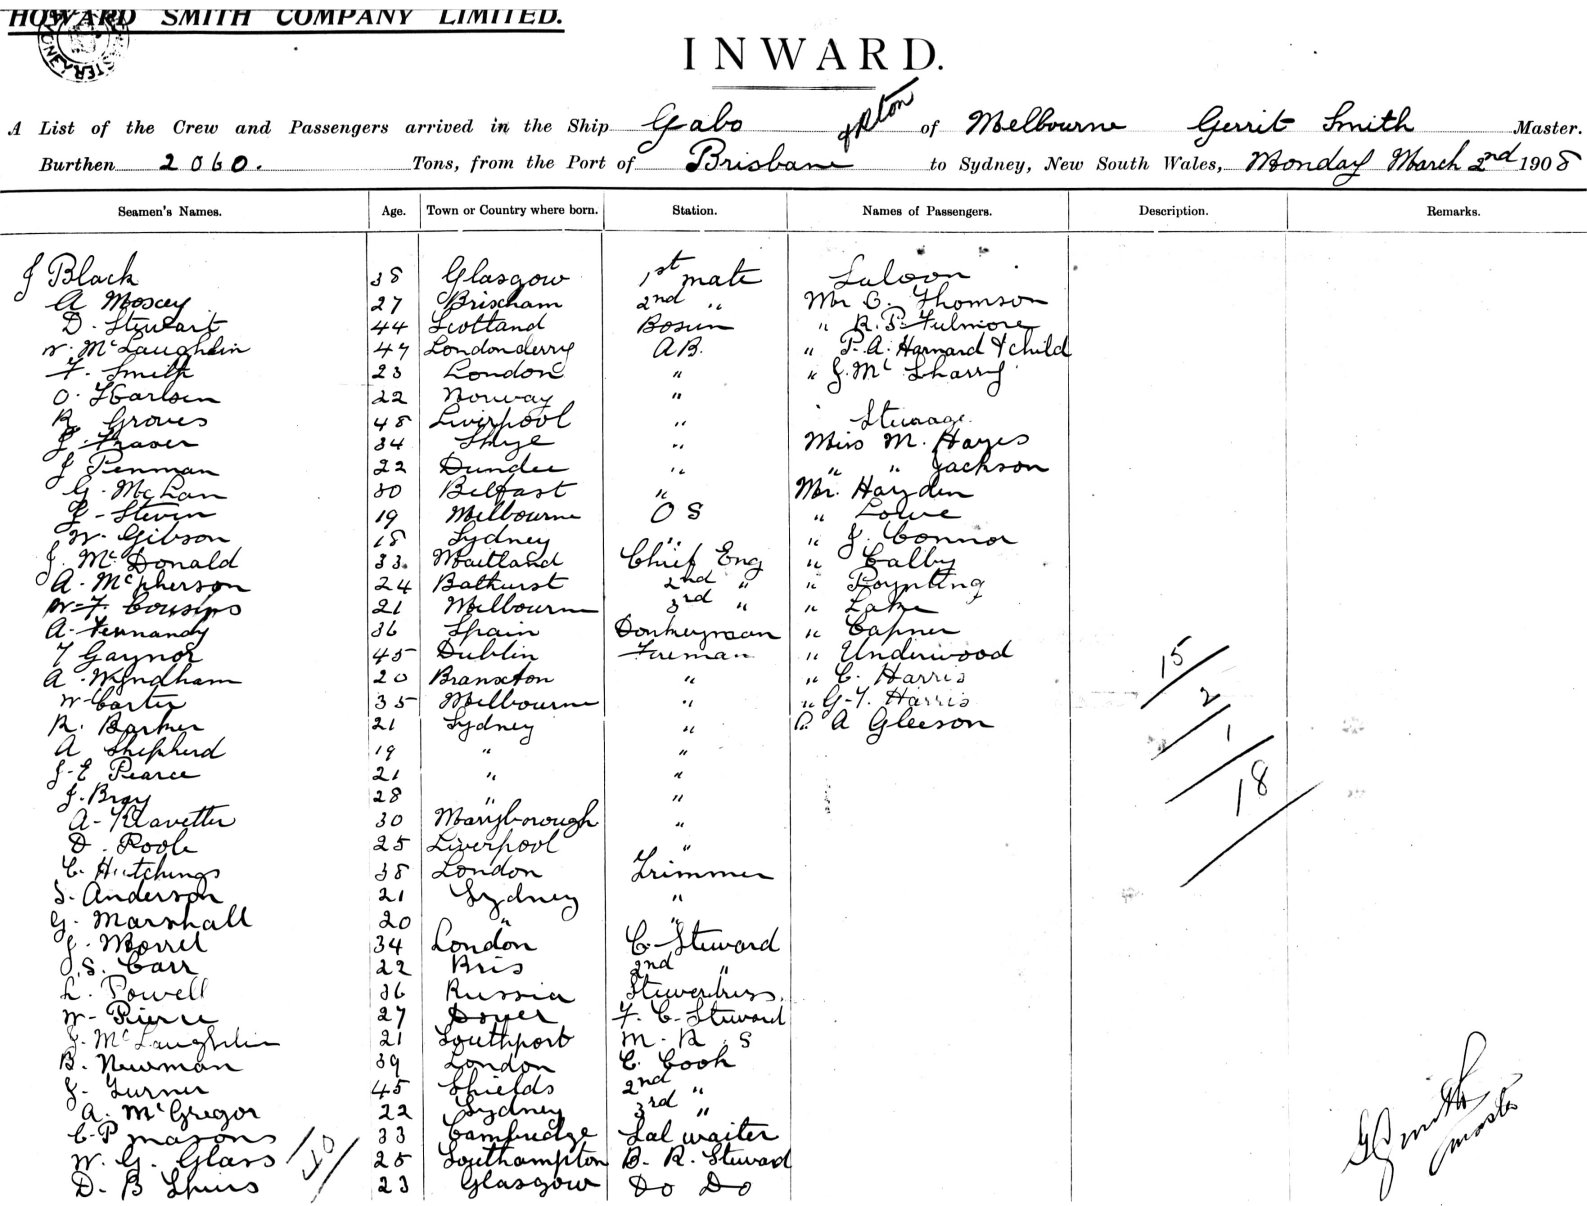 HOWARD SMITH COMPANY LIMITED.
INWARD.
A List of the Crew and Passengers arrived in the Ship Gabo of Melbourne Gerrit Smith Master.
Burthen 2060. Tons, from the Port of Brisbane to Sydney, New South Wales, Monday March 2nd 1908
Seamen's Names. Age. Town or Country where born. Station. Names of Passengers. Description. Remarks.
J Black 38 Glasgow 1st mate Saloon
A Moxey 27 Brixham 2nd " Mr C. Thomson
D. Stewart 44 Scotland Bosun " R. P. Fulmore
W. McLaughlin 47 Londonderry A.B. " P. A. Harnard & child
F. Smith 23 London " " J. Mc Sharry
O. Karlsen 22 Norway "
R. Groves 48 Liverpool " Steerage
J. Fraser 34 Skye " Miss M. Hayes
J Penman 22 Dundee " " " Jackson
G. 30 Belfast " Mr. Hayden
J. Steven 19 Melbourne O S " Lowe
W. Gibson 18 Sydney " " J. Connor
J. McDonald 33. Maitland Chief Eng " Calby
A. McPherson 24 Bathurst 2nd " " Poynting
W. F. Cousins 21 Melbourne 3rd " " Lake
A. Fernandy 36 Spain Donkeyman " Capner
T Gaynor 45 Dublin Fireman " Underwood
A. Wyndham 20 Branxton " " C. Harris
W Carter 35 Melbourne " " G. T. Harris
R. Barker 21 Sydney " A Gleeson
A Shepherd 19 " "
J. E Pearce 21 " "
J. Bray 28 " "
A. Klavetter 30 Maryborough "
D. Poole 25 Liverpool "
C. Hutchings 38 London Trimmer
S. Anderson 21 Sydney "
G. Marshall 20 " "
J. Morrel 34 London C. Steward
J. S. Carr 22 Bris 2nd "
L. Powell 36 Russia
W. Pierre 27 Dover F. C. Steward
J. McLaughlin 21 Southport M. R. S
B. Newman 39 London C. Cook
J. Turner 45 Shields 2nd "
A. McGregor 22 Sydney 3rd "
C. P Masons 33 Cambridge Sal waiter
W. G. Glass 25 Southampton B. R. Steward
D. B Spiers 23 Glasgow Do Do
40
15
2
1
18
G Smith
master